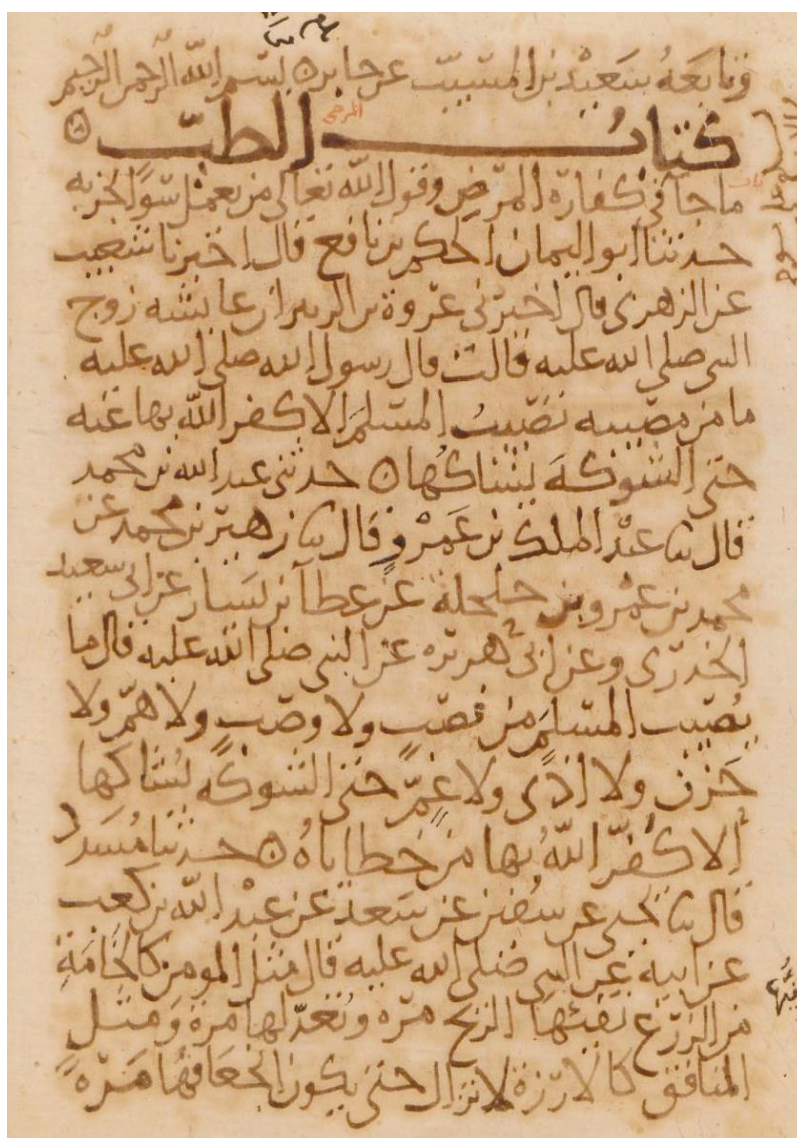 وتابعه سَعيْد بن المسيّب عن جابر ه بسم الله الرّحمن الرّحيم
المرضى
كتابُ الطبّ
باب
ما جا في كفارة المرَضِ وقول الله تعالى من يعمل سوًا يجز به
حدثنا ابو اليمان الحكم بن نافع قال اخبرنا شعيب
عن الزهري قال اخبرَني عروة بن الزبير ان عايشه زوج
النبي صلى الله عليه قالت قال رسول الله صلى الله عليه
ما من مصيبه تصيبُ المسلمَ الا كفر الله بها عنه
حتى الشوكهَ يشاكُها ه حدثني عبد الله بن محمد
قال نا عبْد الملك بن عَمْرٍو قال نا زهير بن محمد عن
محمد بن عمْرو بن حلحلة عن عطآ بن يَسَار عن ابي سعيد
الخدْرّي وعن ابي هريره عن النبي صلى الله عليه قال ما
يُصيب المسلمَ من نصَبٍ ولا وصَبٍ ولا همّ ولا
حَزَن ولا اذًى ولا غمٍّ حتى الشوكه يُشاكها
الا كفّرَ اللهُ بها من خطاياهُ ه حدثنا مُسَدد
قال نا يحيى عن سفين عن سَعد عن عبْد الله بن كعب
عن ابيه عن النبي صلى الله عليه قال مثل المومن كالخَامَةِ
من الزرْع تفيئها الريح مره وتُعَدّلها مرةً ومَثل
المنافق كالارزة لا تزال حتى يكون انجعَافُها مَرّهً